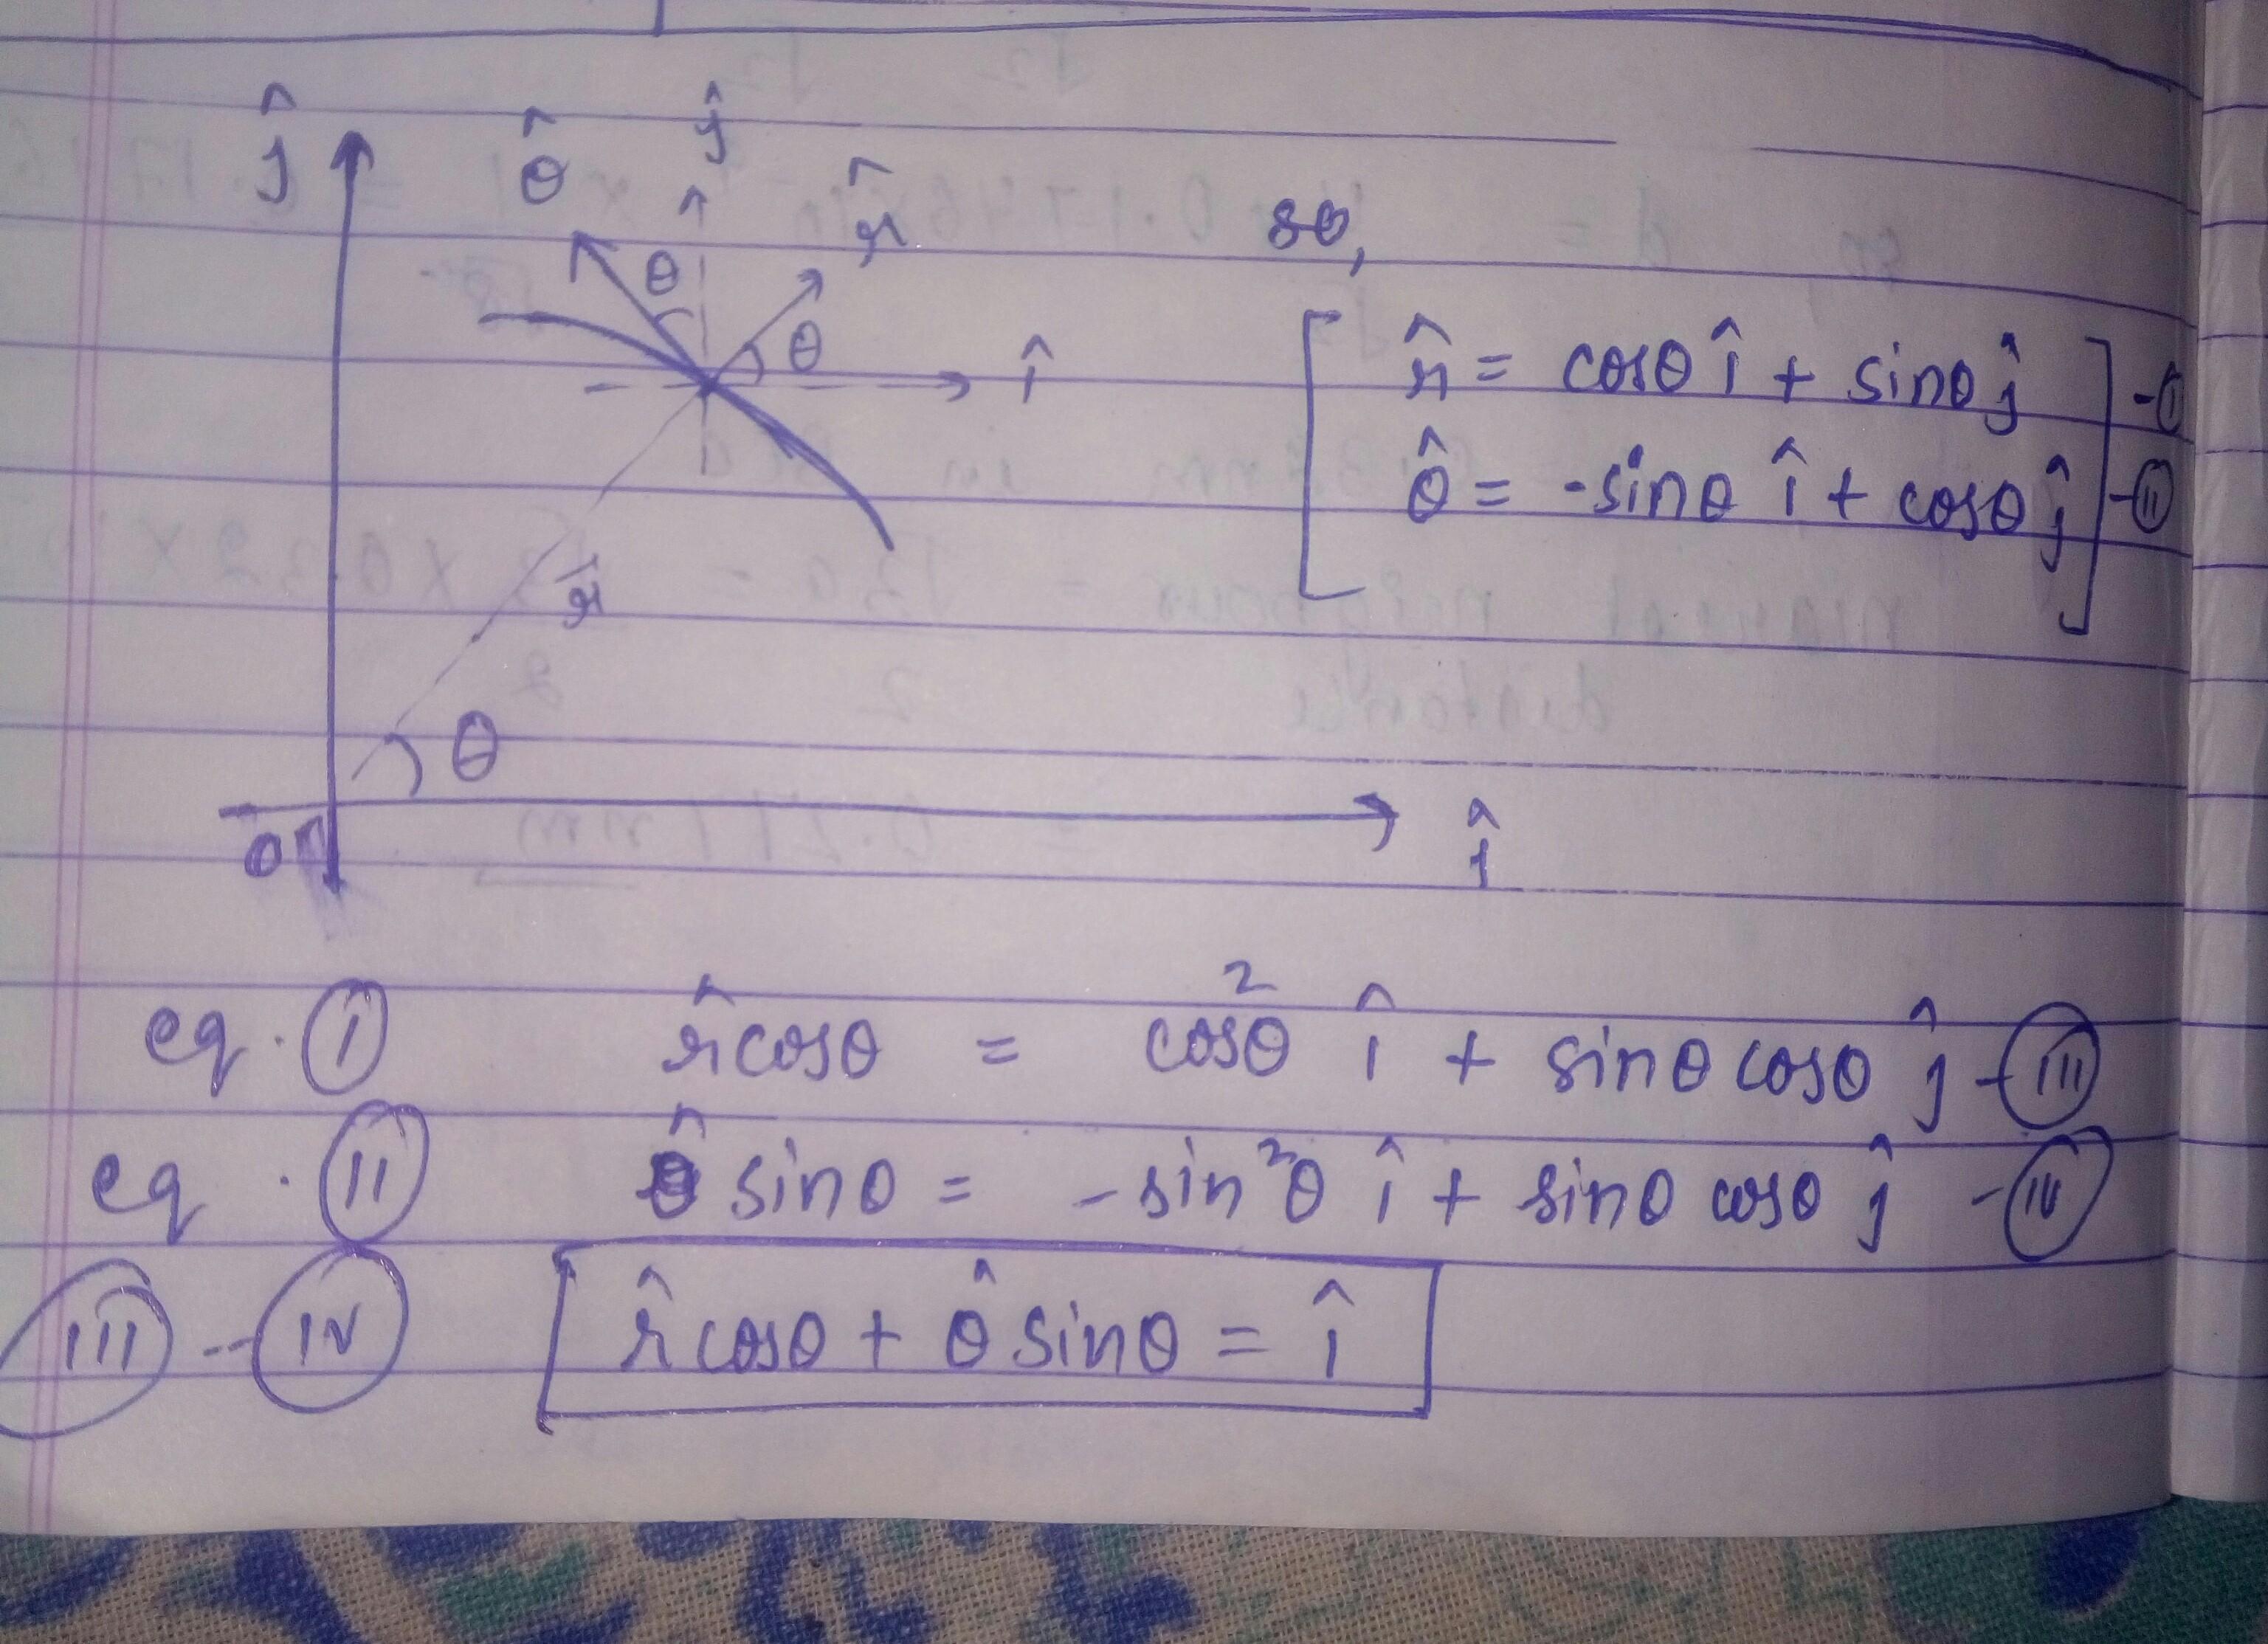 ĵ θ̂ ĵ r̂
θ θ î
r̄
θ
O î
so,
r̂ = cosθ î + sinθ ĵ - (I)
θ̂ = -sinθ î + cosθ ĵ - (II)
eq. (I) r̂ cosθ = cos²θ î + sinθ cosθ ĵ - (III)
eq. (II) θ̂ sinθ = - sin²θ î + sinθ cosθ ĵ - (IV)
(III) - (IV) r̂ cosθ + θ̂ sinθ = î